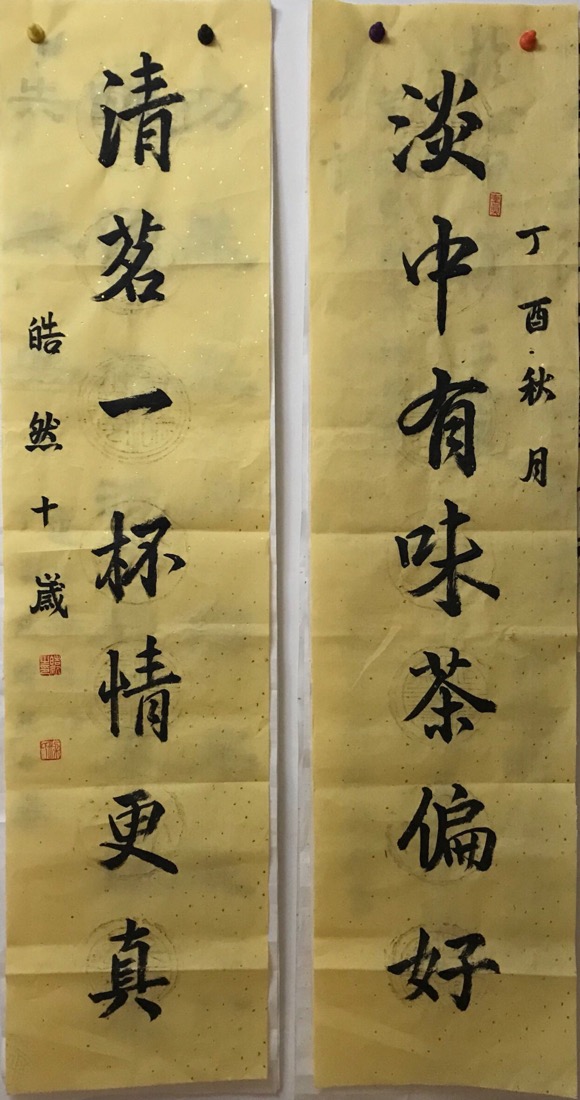 丁酉秋月
淡中有味茶偏好
清茗一杯情更真
皓然十歲